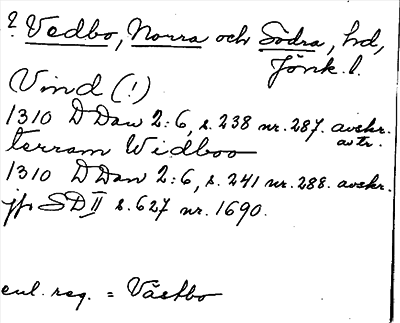 ? Vedbo, Norra och Södra, hd,
Jönk. l.
Vind (!)
1310 DDan 2:6, s. 238 nr. 287. avskr.
av tr.
terram Widboo
1310 DDan 2:6, s. 241 nr. 288. avskr.
jfr SD II s. 627 nr. 1690.
enl. reg. = Västbo